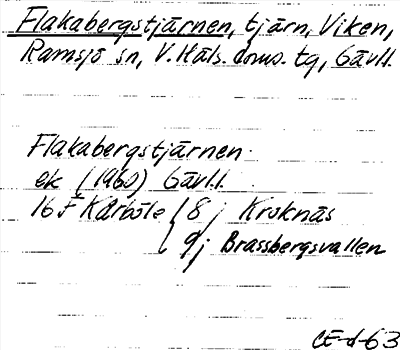 Flakabergstjärnen, tjärn, Viken,
Ramsjö sn, V. Häls. doms. tg, Gävl.l.
Flakabergstjärnen
ek (1960) Gävl.l.
16 F Kårböle { 8 j Kroknäs
9 j Brassbergsvallen
CE-d-63